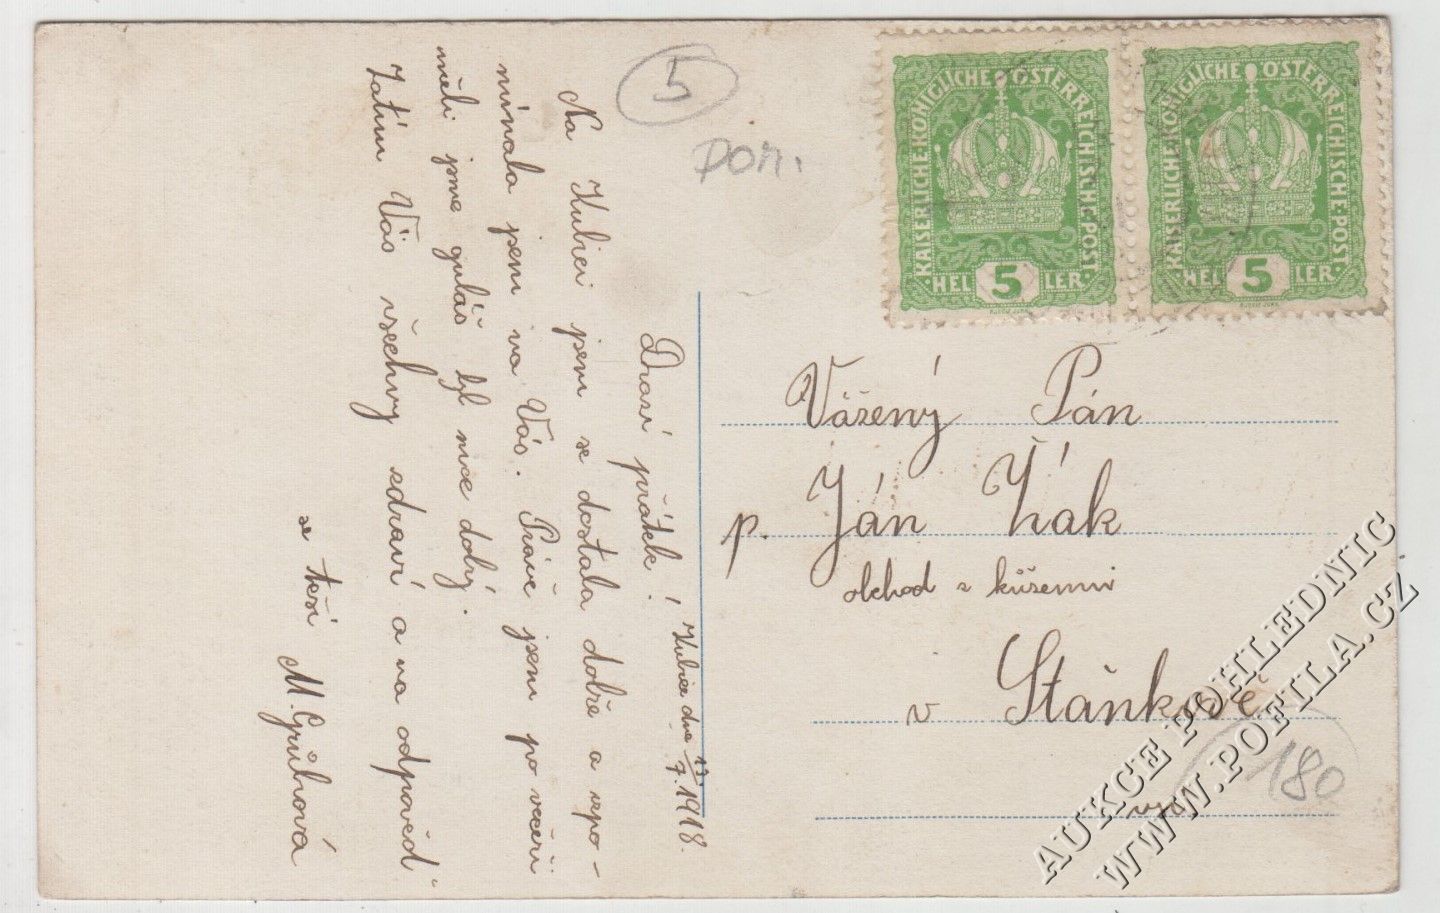 5
Dor.
KAISERLICHE·KÖNIGLICHE·ÖSTERREICHISCHE·POST
HEL 5 LER
KAISERLICHE·KÖNIGLICHE·ÖSTERREICHISCHE·POST
HEL 5 LER
Kubice dne 13/7. 1918.
Drazí přátelé!
Na Kubici jsem se dostala dobře a vpo-
mínala jsem na Vás. Právě jsem po večeři
měli jsme guláš byl moc dobrý.
Zatím Vás všechny zdraví a na odpověd'
se těší M. Grühová
Vážený Pán
p. Ján Žák
obchod s kůžemi
v Stánkově
180
AUKCE POHLEDNIC
WWW.POFILA.CZ